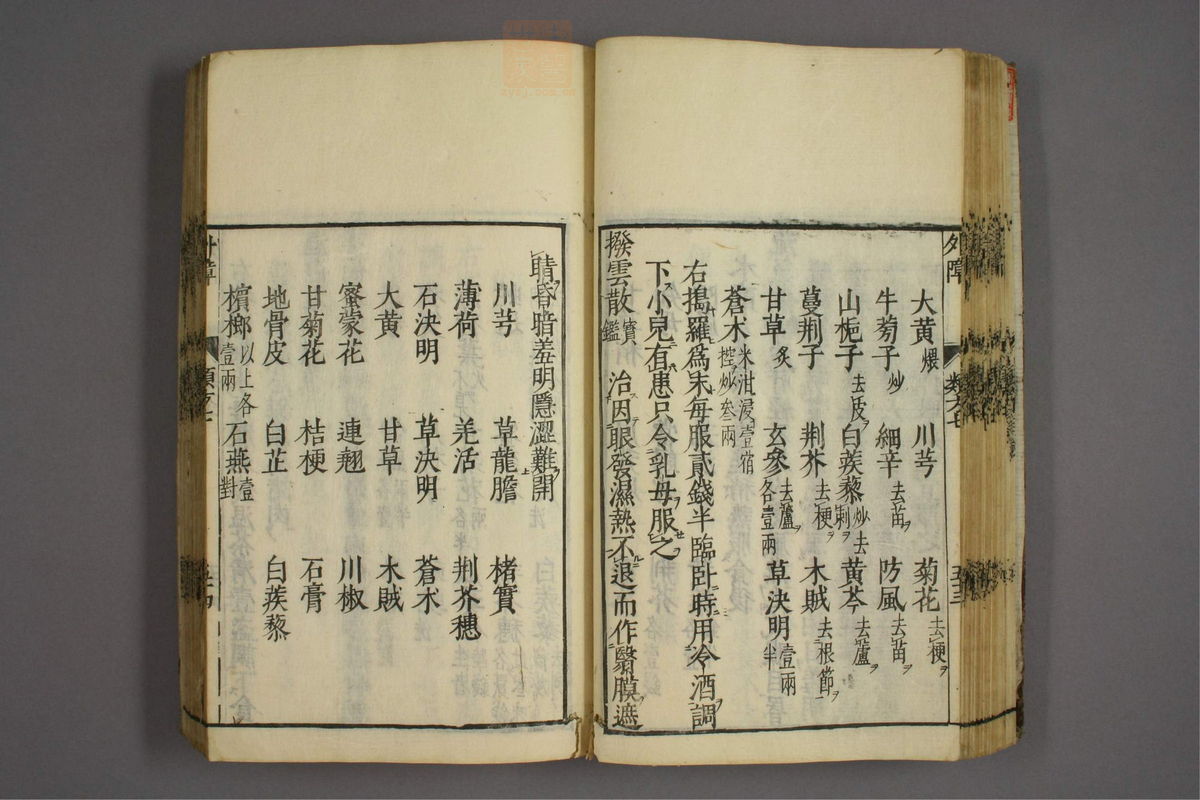 大黃煨 川芎 菊花去梗
牛蒡子炒 細辛去苗 防風去苗
山梔子去皮 白蒺藜炒去刺 黃芩去蘆
蔓荆子 荆芥去梗 木賊去根節
甘草炙 玄參去蘆各壹兩 草決明壹兩半
蒼术米泔浸壹宿控炒叁兩
右搗羅爲末每服貳錢半臨臥時用冷酒調
下小兒有患只令乳母服之
撥雲散寳鑑 治因眼發濕熱不退而作翳膜遮
睛昏暗羞明隱澀難開
川芎 草龍膽 楮實
薄荷 羌活 荆芥穗
石決明 草決明 蒼术
大黃 甘草 木賊
蜜蒙花 連翹 川椒
甘菊花 桔梗 石膏
地骨皮 白芷 白蒺藜
檳榔以上各壹兩 石燕壹對